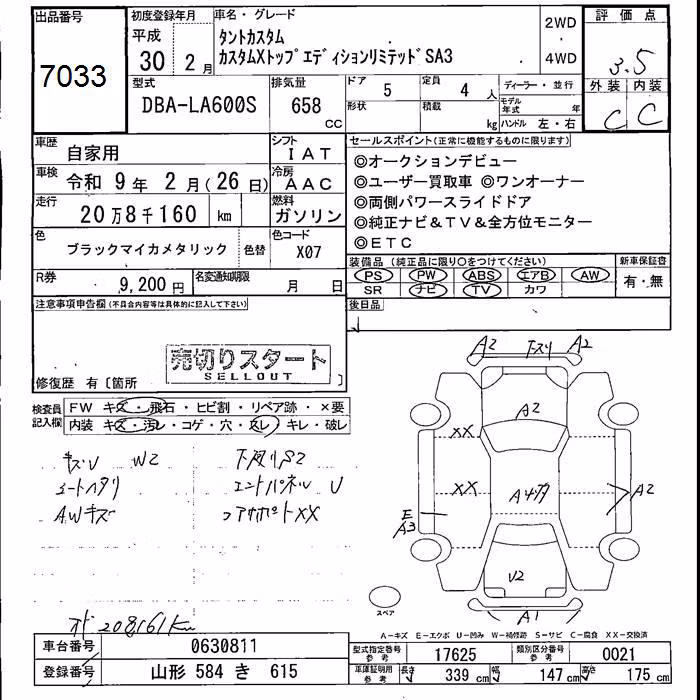 出品番号
7033
初度登録年月
平成
30 2月
車名・グレード
タントカスタム
カスタムXトップエディションリミテッドSA3
2WD
・
4WD
評価点
3.5
外装 内装
C C
型式
DBA-LA600S
排気量
658
CC
ドア
5
定員
4 人
形状
積載
kg
ディーラー・並行
モデル年式 年
ハンドル 左・右
車歴
自家用
シフト
IAT
車検
令和 9年 2月(26日)
冷房
AAC
走行
20万8千160 km
燃料
ガソリン
色
ブラックマイカメタリック
色替
色コード
X07
R券
9,200円
名変通知期限
月 日
セールスポイント(正常に機能するものに限ります)
◎オークションデビュー
◎ユーザー買取車 ◎ワンオーナー
◎両側パワースライドドア
◎純正ナビ&TV&全方位モニター
◎ETC
装備品(純正品に限り〇をつけてください)
PS PW ABS エアB AW
SR ナビ TV カワ
新車保証書
有・無
後日品
注意事項申告欄(不具合内容等は具体的に記入して下さい)
売切りスタート
SELLOUT
修復歴 有〔箇所 〕
検査員
記入欄
FW キズ・飛石・ヒビ割・リペア跡・×要
内装 キズ・汚レ・コゲ・穴・スレ・キレ・破レ
キズU W2
シートヘタリ
AWキズ
下廻りS2
エンドパネル U
コアサポートXX
オド 208161km
A2
下スリ
A2
A2
XX
XX
Aキズ
A2
E
A3
U2
A1
スペア
A-キズ E-エクボ U-凹み W-補修跡 S-サビ C-腐食 XX-交換済
車台番号
0630811
登録番号
山形 584 き 615
型式指定番号
参考
17625
類別区分番号
参考
0021
車庫証明用
参考
長さ
339 cm
幅
147 cm
高さ
175 cm